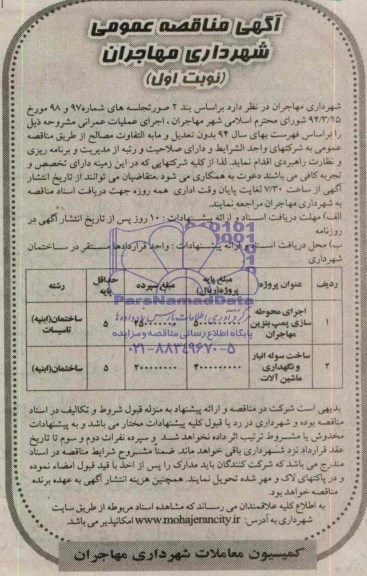 آگهی مناقصه عمومی
شهرداری مهاجران
(نوبت اول)
شهرداری مهاجران در نظر دارد براساس بند ۲ صورتجلسه های شماره۹۷ و ۹۸ مورخ
۹۴/۳/۲۵ شورای محترم اسلامی شهر مهاجران ، اجرای عملیات عمرانی مشروحه ذیل
را براساس فهرست بهای سال ۹۴ بدون تعدیل و مابه التفاوت مصالح از طریق مناقصه
عمومی به شرکتهای واجد الشرایط و دارای صلاحیت و رتبه از مدیریت و برنامه ریزی
و نظارت راهبردی اقدام نماید. لذا از کلیه شرکتهایی که در این زمینه دارای تخصص و
تجربه کافی می باشند دعوت به همکاری می شود .متقاضیان می توانند از تاریخ انتشار
آگهی از ساعت ۷/۳۰ لغایت پایان وقت اداری همه روزه جهت دریافت اسناد مناقصه
به شهرداری مهاجران مراجعه نمایند.
الف) مهلت دریافت اسناد و ارائه پیشنهادات : ۱۰ روز پس از تاریخ انتشار آگهی در
روزنامه
ب) محل دریافت اسناد و ارائه پیشنهادات : واحد قراردادها مستقر در ساختمان
شهرداری
ردیف عنوان پروژه مبلغ پایه پروژه(ریال) مبلغ سپرده حداقل پایه رشته
۱ اجرای محوطه سازی پمپ بنزین مهاجران ۵ ساختمان(ابنیه) تاسیسات
۲ ساخت سوله انبار و نگهداری ماشین آلات ۵ ساختمان(ابنیه)
ParsNamadData
پایگاه اطلاع رسانی مناقصه و مزایده
۰۲۱-۸۸۳۴۹۶۷۰-۵
بدیهی است شرکت در مناقصه و ارائه پیشنهاد به منزله قبول شروط و تکالیف در اسناد
مناقصه بوده و شهرداری در رد یا قبول کلیه پیشنهادات مختار می باشد و به پیشنهادات
مخدوش یا مشروط ترتیب اثر داده نخواهد شد و سپرده نفرات دوم و سوم تا تاریخ
عقد قرارداد نزد شهرداری باقی خواهد ماند. ضمنا مشروح شرایط مناقصه در اسناد
مندرج می باشد که شرکت کنندگان باید مدارک را پس از اخذ با قید قبول امضاء نموده
و در پاکتهای لاک و مهر شده تحویل نمایند. همچنین هزینه انتشار آگهی به عهده برنده
مناقصه خواهد بود.
به اطلاع کلیه علاقمندان می رساند که مشاهده اسناد مربوطه از طریق سایت
شهرداری به آدرس: www.mohajerancity.ir امکانپذیر می باشد.
کمیسیون معاملات شهرداری مهاجران